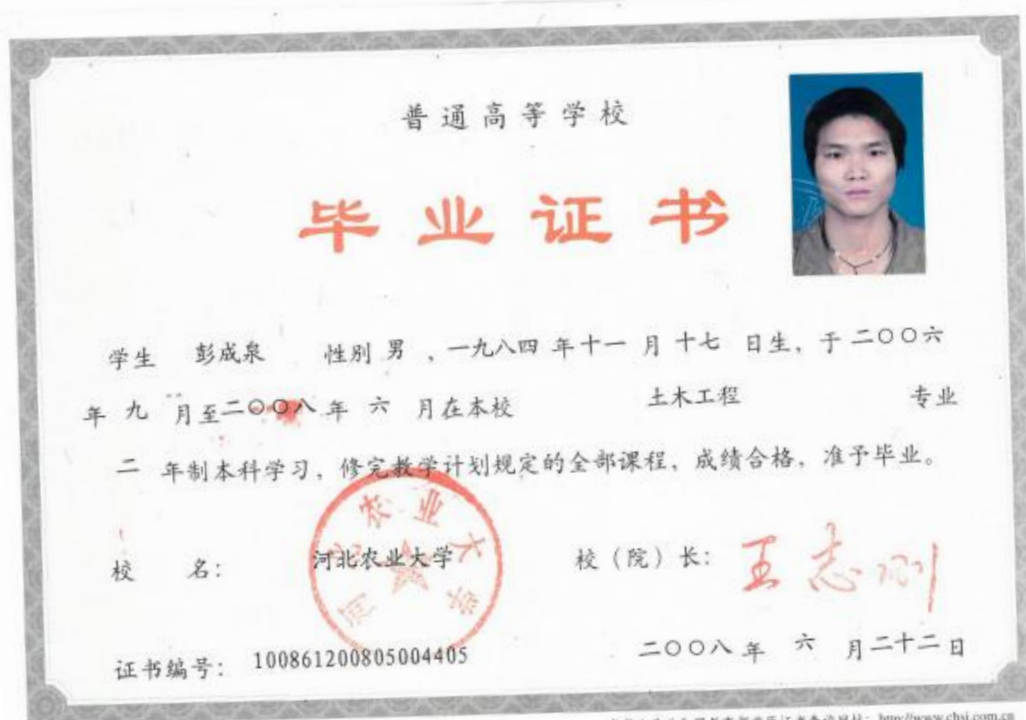 普通高等学校
毕业证书
学生 彭成泉 性别 男 ，一九八四 年十一 月 十七 日生，于 二〇〇六
年 九 月至二〇〇八 年 六 月在本校 土木工程 专业
二 年制本科学习，修完教学计划规定的全部课程，成绩合格，准予毕业。
校 名： 河北农业大学 校（院）长： 王志刚
农业大学
证书编号： 100861200805004405 二〇〇八 年 六 月二十二日
http://www.chsi.com.cn